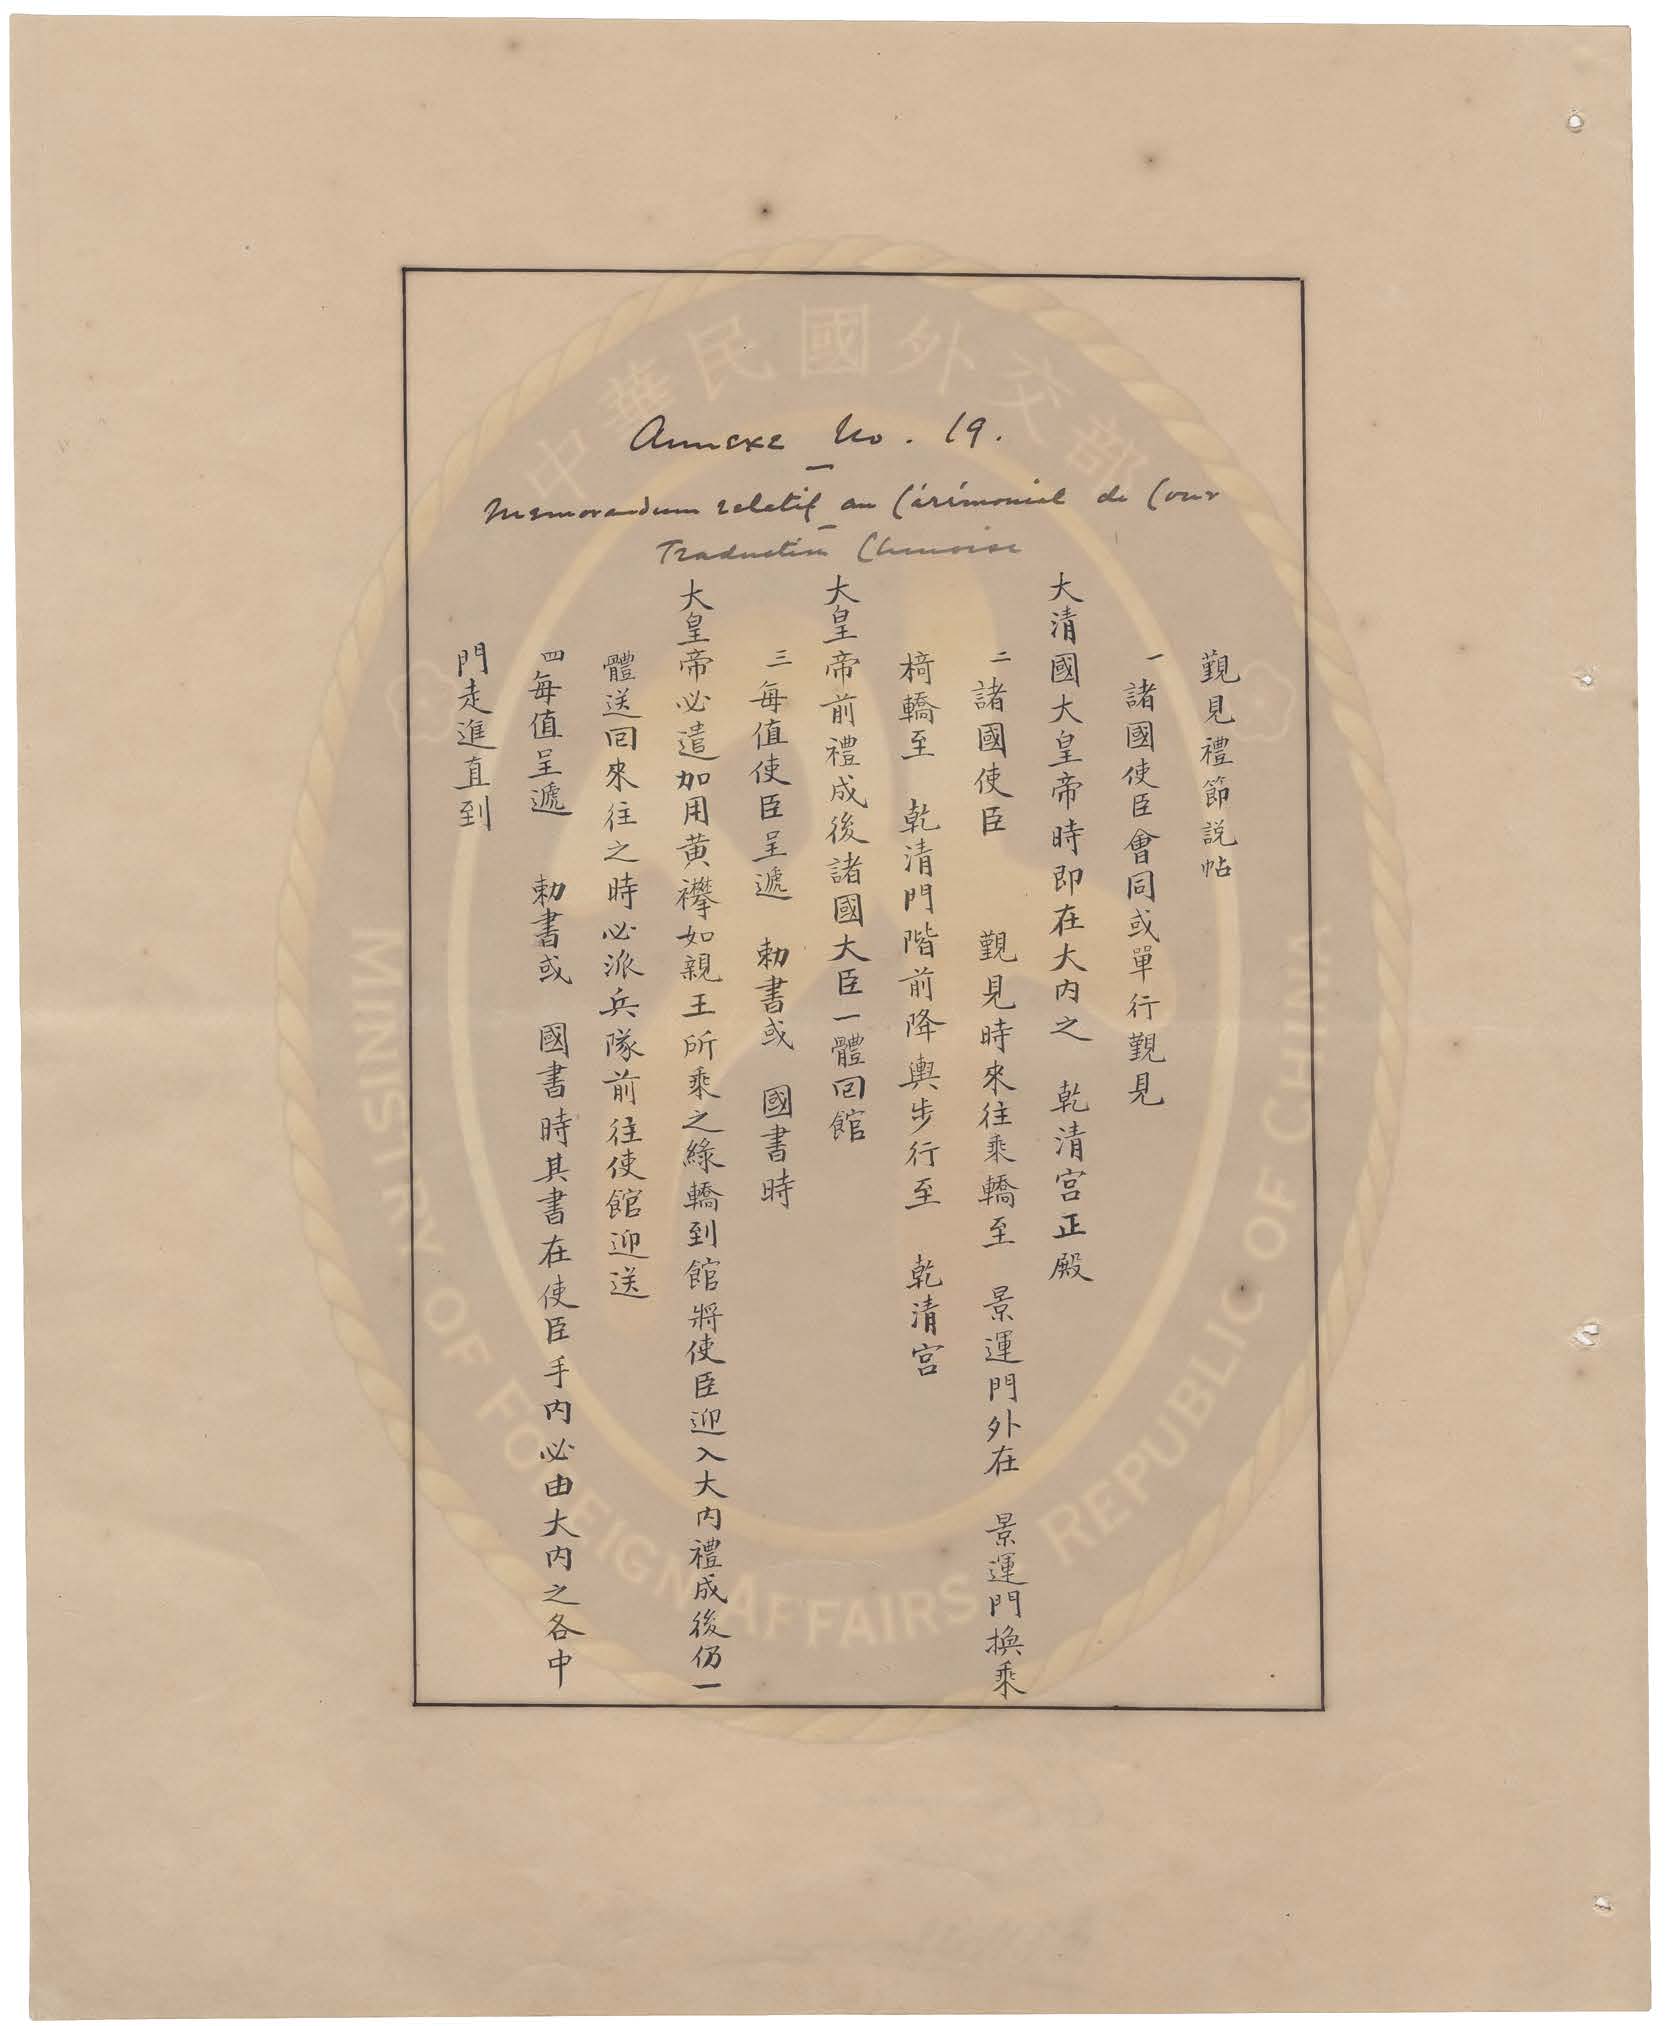 Annexe No. 19.
Memorandum relatif au Cérémonial de Cour
Traduction Chinoise
覲見禮節説帖
一諸國使臣會同或單行覲見
大清國大皇帝時即在大内之 乾清宫正殿
二諸國使臣 覲見時來往乘轎至 景運門外在 景運門換乘
椅轎至 乾清門階前降輿步行至 乾清宫
大皇帝前禮成後諸國大臣一體回館
三每值使臣呈遞 勅書或 國書時
大皇帝必遣加用黄襻如親王所乘之綠轎到館將使臣迎入大内禮成後仍一
體送回來往之時必派兵隊前往使館迎送
四每值呈遞 勅書或 國書時其書在使臣手内必由大内之各中
門走進直到
中華民國外交部
MINISTRY OF FOREIGN AFFAIRS REPUBLIC OF CHINA